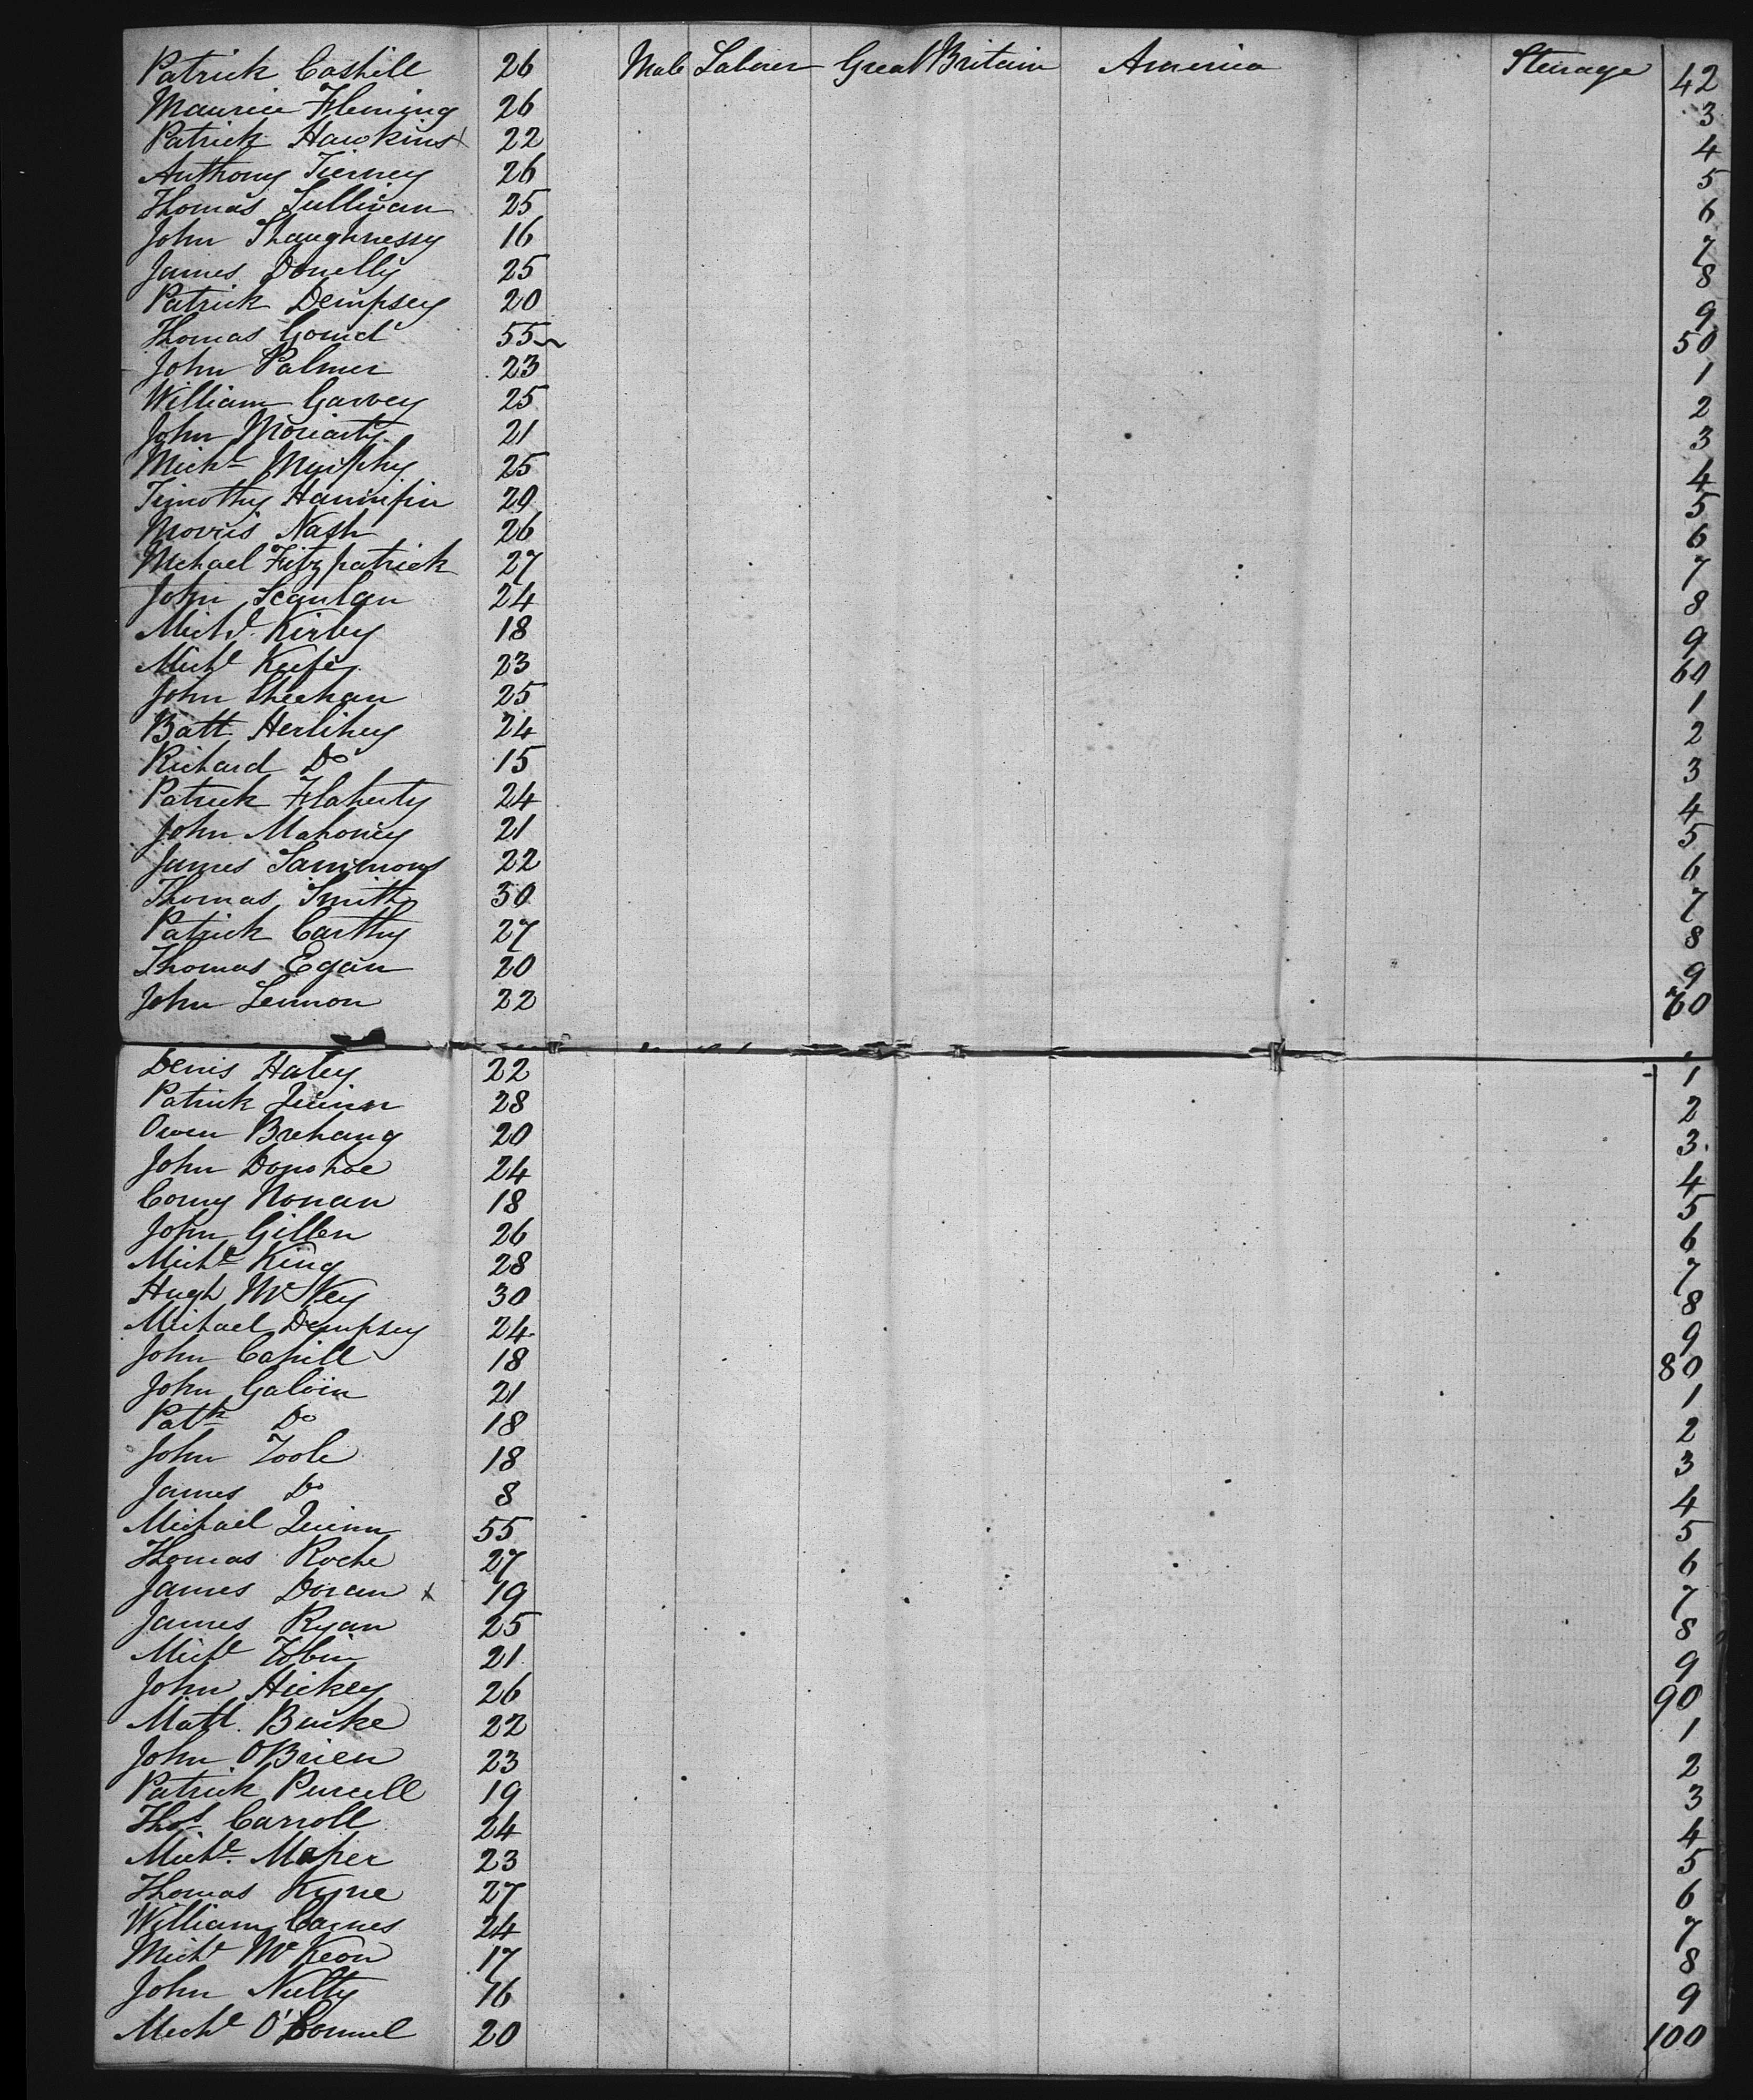 Patrick Cashill 26 Male Laborer Great Britain America Steerage 42
Maurice Fleming 26 3
Patrick Hawkins x 22 4
Anthony Tierney 26 5
Thomas Sullivan 25 6
John Shaughnessy 16 7
James Donelly 25 8
Patrick Dempsey 20 9
Thomas 55 50
John Palmer 23 1
William Garvey 25 2
John Moriarty 21 3
Michl Murphy 25 4
Timothy Hannifin 20 5
Morris Nash 26 6
Michael Fitzpatrick 27 7
John Scanlan 24 8
Michl Kirby 18 9
Michl Keefe 23 60
John Sheehan 25 1
Batt Herlihey 24 2
Richard Do 15 3
Patrick Flaherty 24 4
John Mahoney 21 5
James Sammons 22 6
Thomas Smith 30 7
Patrick Carthy 27 8
Thomas Egan 20 9
John Lennon 22 70
Denis Haley 22 1
Patrick Quinn 28 2
Owen 20 3
John Donohoe 24 4
Corny Nonan 18 5
John Gillen 26 6
Michl King 28 7
Hugh McKey 30 8
Michael Dempsey 24 9
John Cahill 18 80
John Galvin 21 1
Patk Do 18 2
John Toole 18 3
James Do 8 4
Michael Quinn 55 5
Thomas Roche 27 6
James Doran x 19 7
James Ryan 25 8
Michl Tobin 21 9
John Hickey 26 90
Matt. Burke 22 1
John OBrien 23 2
Patrick Purcell 19 3
Thos Carroll 24 4
Michl Maher 23 5
Thomas Kyne 27 6
William Carnes 24 7
Michl McKeon 17 8
John Nulty 16 9
Michl O'Connel 20 100